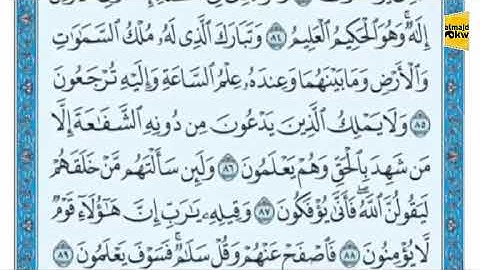 إِلَٰهٌ وَهُوَ ٱلْحَكِيمُ ٱلْعَلِيمُ ٨٤ وَتَبَارَكَ ٱلَّذِى لَهُۥ مُلْكُ ٱلسَّمَٰوَٰتِ
وَٱلْأَرْضِ وَمَا بَيْنَهُمَا وَعِندَهُۥ عِلْمُ ٱلسَّاعَةِ وَإِلَيْهِ تُرْجَعُونَ
٨٥ وَلَا يَمْلِكُ ٱلَّذِينَ يَدْعُونَ مِن دُونِهِ ٱلشَّفَٰعَةَ إِلَّا
مَن شَهِدَ بِٱلْحَقِّ وَهُمْ يَعْلَمُونَ ٨٦ وَلَئِن سَأَلْتَهُم مَّنْ خَلَقَهُمْ
لَيَقُولُنَّ ٱللَّهُ فَأَنَّىٰ يُؤْفَكُونَ ٨٧ وَقِيلِهِۦ يَٰرَبِّ إِنَّ هَٰٓؤُلَآءِ قَوْمٌ
لَّا يُؤْمِنُونَ ٨٨ فَٱصْفَحْ عَنْهُمْ وَقُلْ سَلَٰمٌ فَسَوْفَ يَعْلَمُونَ ٨٩
almajd
kw